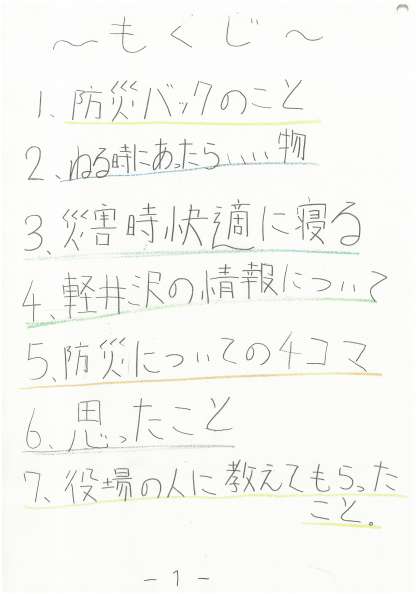 ～もくじ～
1、防災バックのこと
2、ねる時にあったらいい物
3、災害時快適に寝る
4、軽井沢の情報について
5、防災についての4コマ
6、思ったこと
7、役場の人に教えてもらった
こと。
－1－